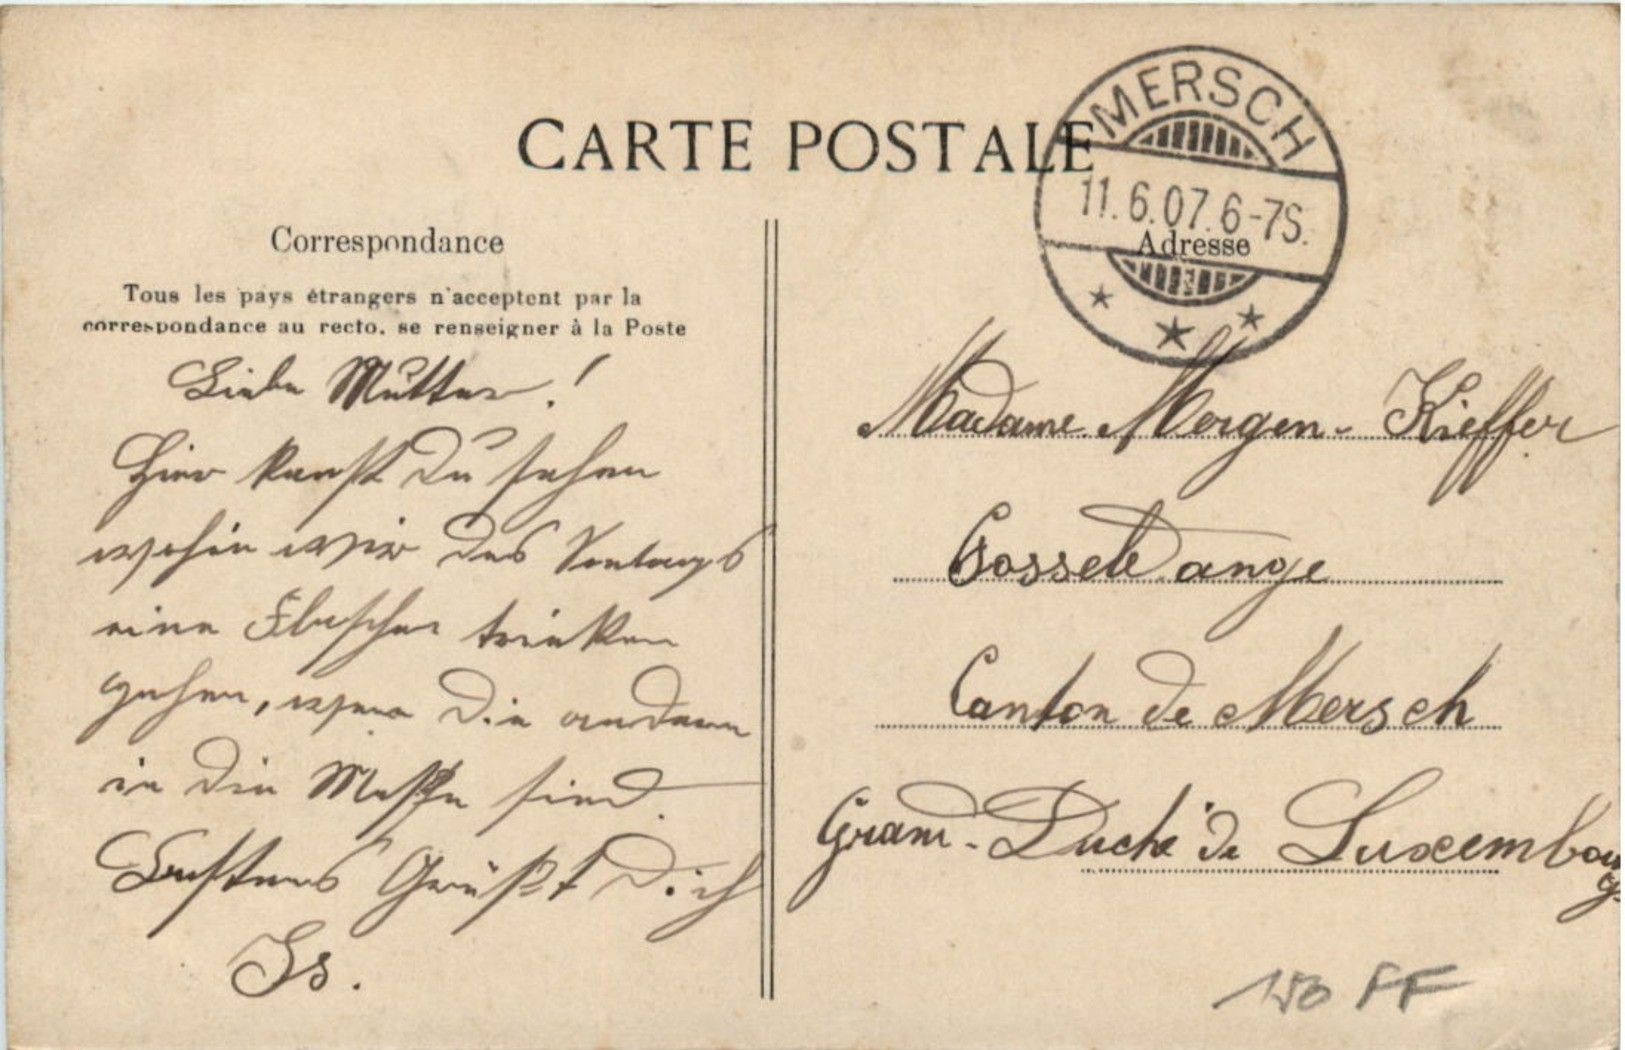 CARTE POSTALE
MERSCH
11.6.07.6-7S.
Correspondance
Adresse
Tous les pays étrangers n'acceptent par la
correspondance au recto, se renseigner à la Poste
Liebe Mutter!
Hier kanst Du sehen
wohin wir des Sontags
eine Flasche trinken
gehen, wen die andern
in die Messe sind.
Bestens Grüßt Dich
Js.
Madame Morgen-Kieffer
Gosseldange
Canton de Mersch
Grand-Duché de Luxembourg
150 FF